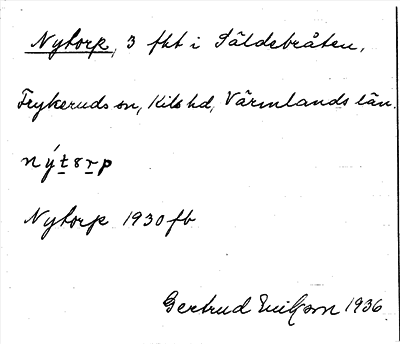 Nytorp, 3 fht i Säldebråten,
Frykeruds sn, Kils hd, Värmlands län.
nýt8rp
Nytorp 1930 fb
Gertrud Ericson 1936